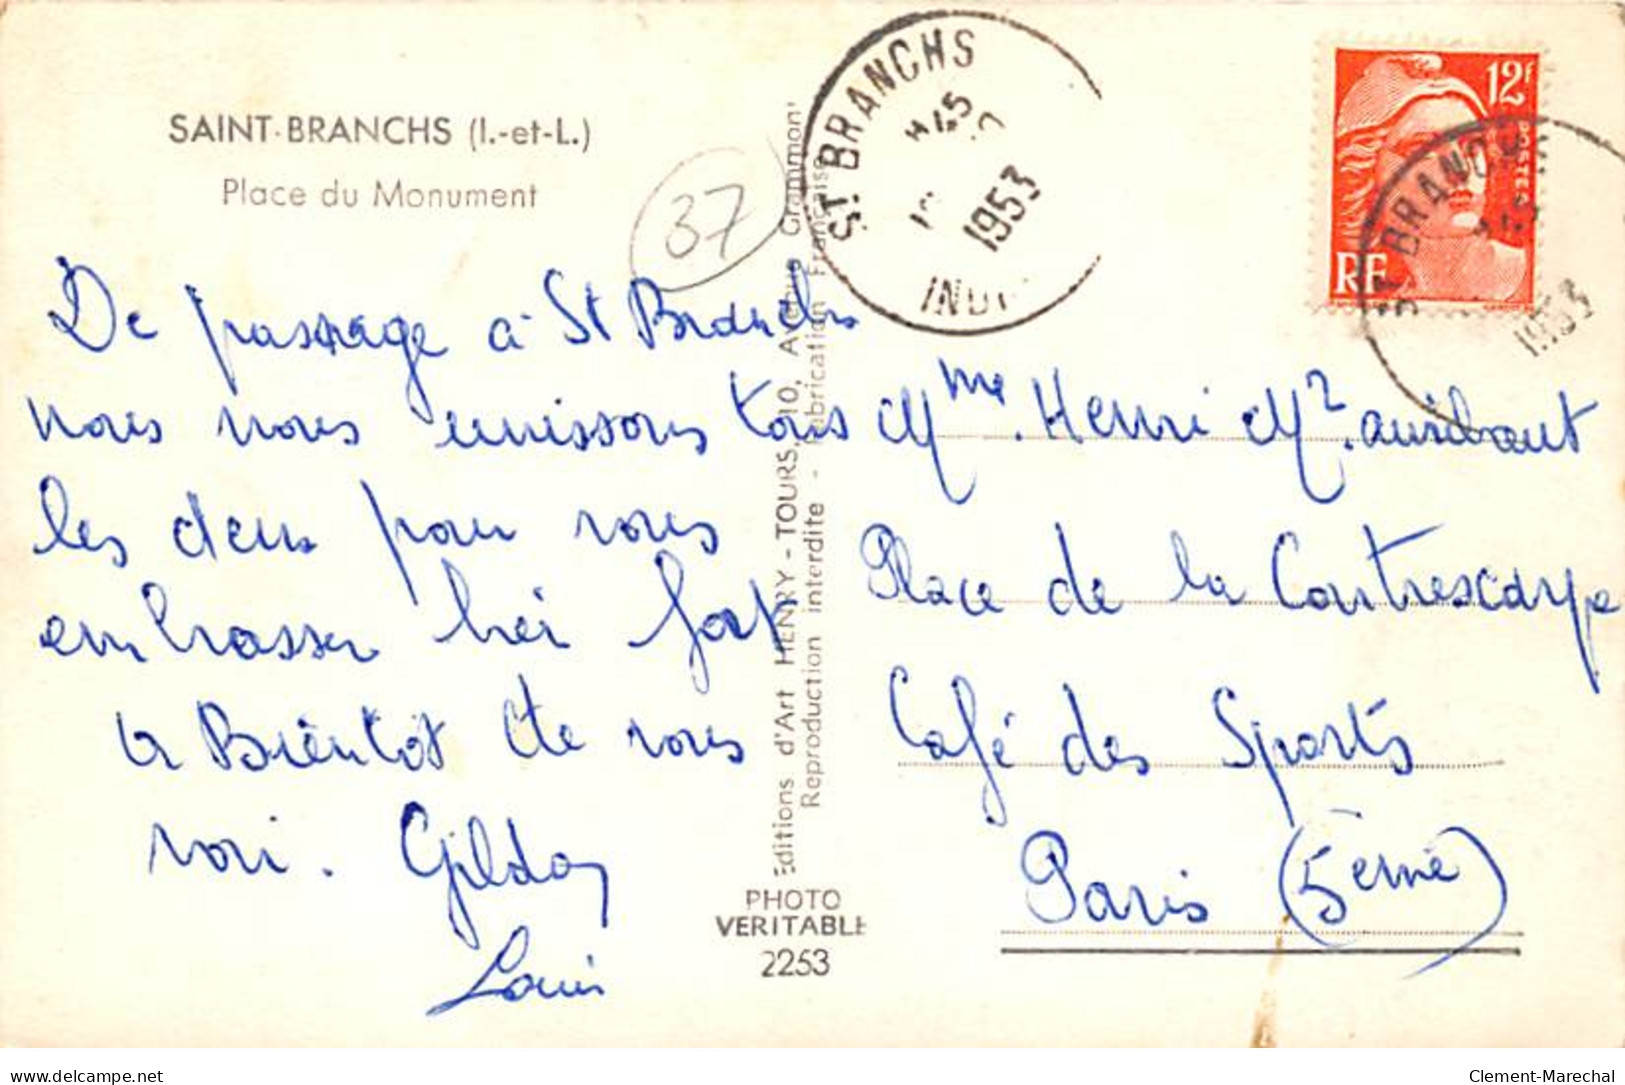 SAINT-BRANCHS (I.-et-L.)
Place du Monument
37
De passage à St Branchs
nous nous unissons tous
les deux pour vous
embrasser bien fort
a Bientôt de vous
voir. Gilda
Louis
Editions d'Art HENRY - TOURS, 10, Avenue Grammont
Reproduction interdite - Fabrication Française
PHOTO
VERITABLE
2253
ST. BRANCHS
1953
IND
12F
POSTES
RF
ST. BRANCH
1953
Mme. Henri
Place de la Contrescarpe
Café des Sports
Paris (5ème)
delcampe.net
Clement-Marechal